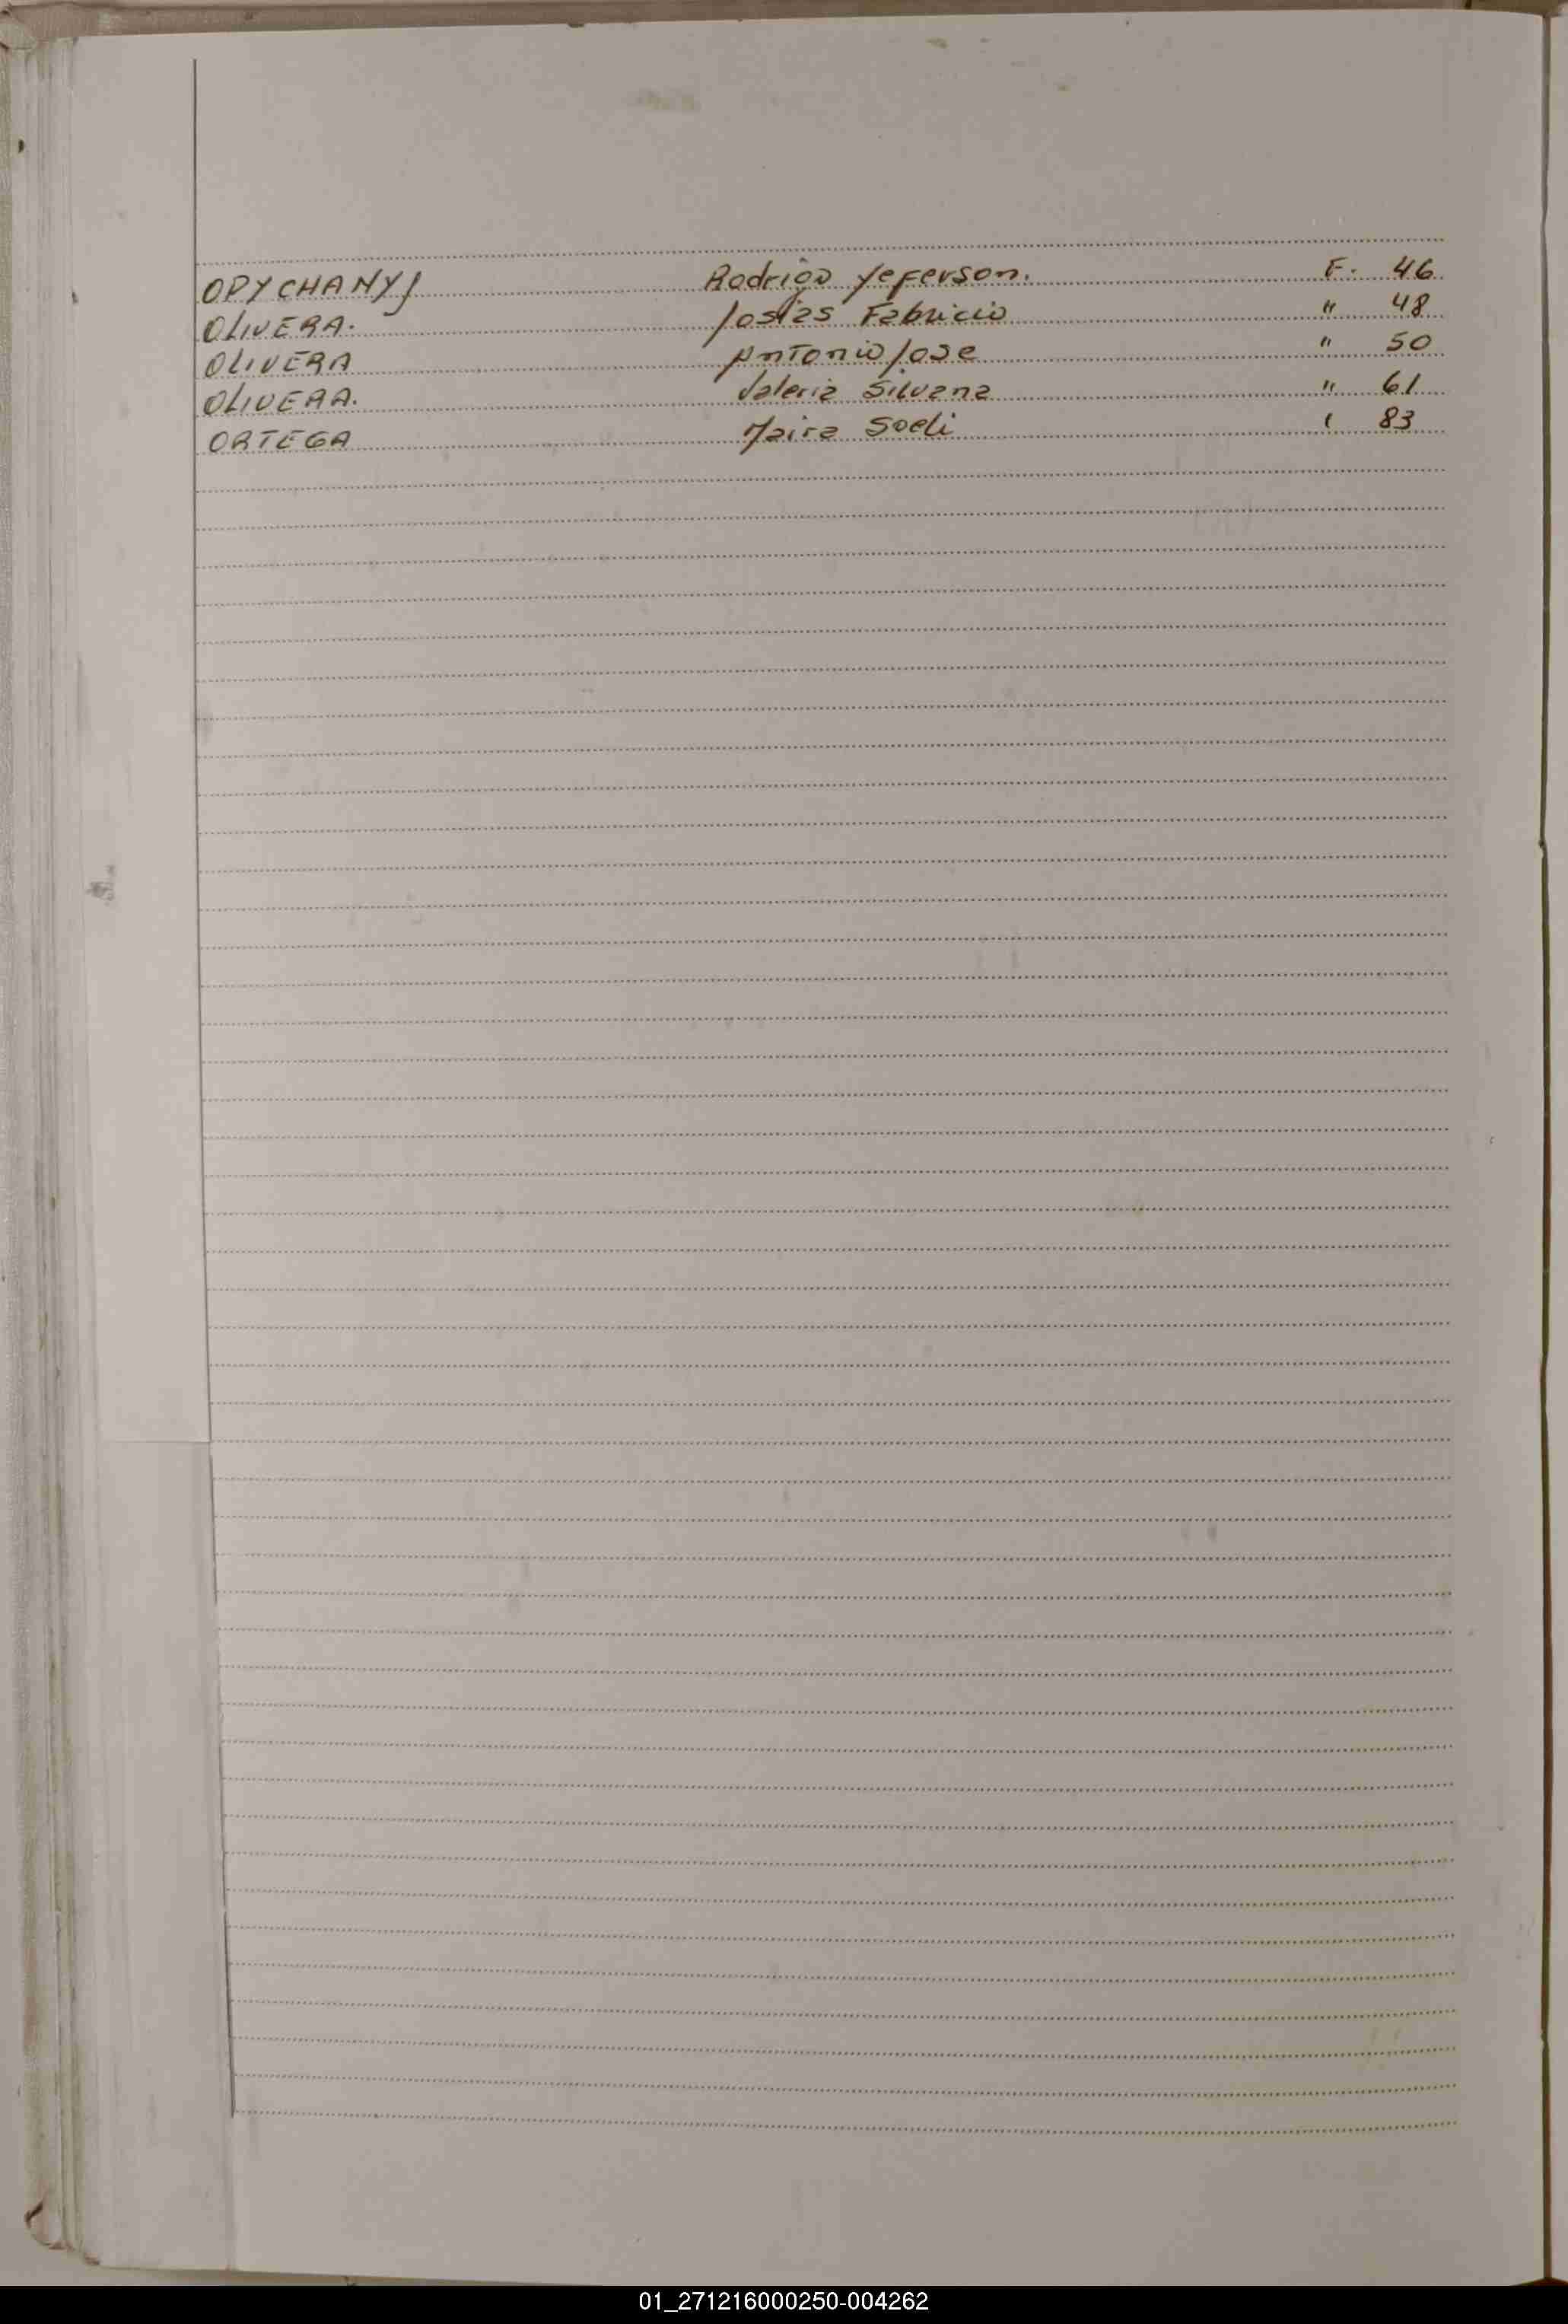 OPYCHANYJ Rodrigo Yeferson. F. 46
OLIVERA. Josias Fabricio " 48
OLIVERA Antonio Jose " 50
OLIVERA. Valeria Silvana " 61
ORTEGA Maira Soeli ' 83
01_271216000250-004262